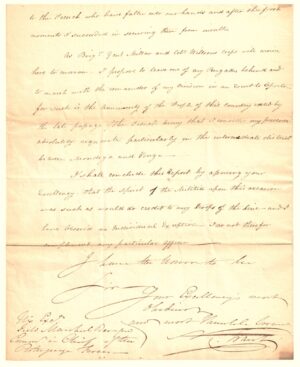 to the French who have fallen into our hands and after the first
moments I succeeded in securing them from insults
As Brigr Genl Miller and Col Wilsons corps will never
have to
I propose to leave one of my Brigades behind and
to march with the remainder of my Division on en route to Oporto,
for such is the of the People of this country caused by
the late that I consider my presence
absolutely requisite particularly in the intermediate district
between Mondego and Vouga
I shall conclude this Report by assuring your
Excellency that the Spirit of the Militia upon this occasion
was such as would do credit to any Troops of the line and I
have observed no Individual Exception. I cannot therefore
compliment any particular officer
I have the Honor to be
Sir
Your Excellency's most
Obedient
and most humble Servt
His Excy
Field Marshal Beresford
Commr in Chief of the
Portuguese Forces